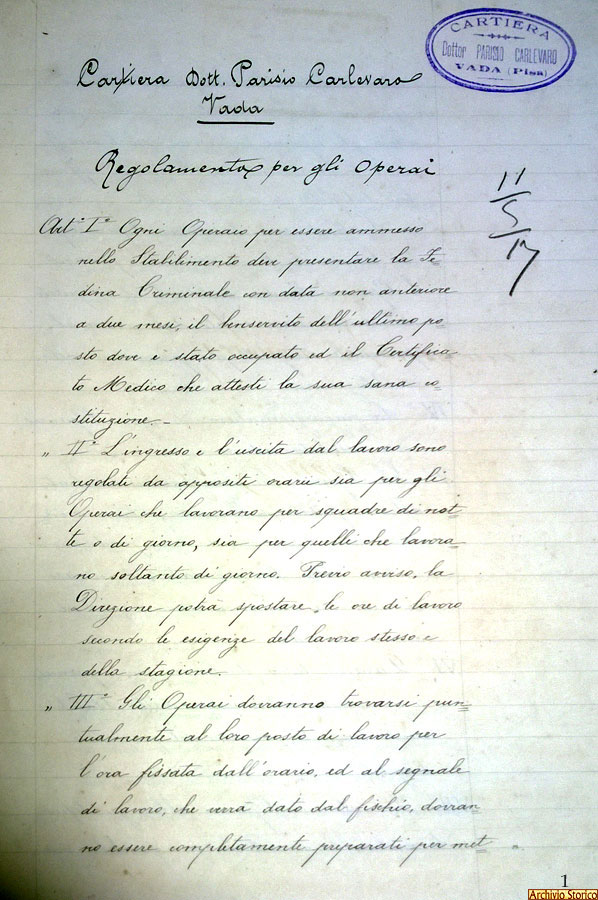 CARTIERA
Dottor PARISIO CARLEVARO
VADA (Pisa)
Cartiera Dott. Parisio Carlevaro
Vada
Regolamento per gli Operai
11/5/17
Art.° I° Ogni Operaio per essere ammesso
nello Stabilimento deve presentare la Fe=
dina Criminale con data non anteriore
a due mesi, il benservito dell'ultimo po=
sto dove è stato occupato ed il Certifica=
to Medico che attesti la sua sana co=
stituzione.-
" II° L'ingresso e l'uscita dal lavoro sono
regolati da appositi orarii sia per gli
Operai che lavorano per squadre di not=
te o di giorno, sia per quelli che lavora=
no soltanto di giorno. Previo avviso, la
Direzione potrà spostare le ore di lavoro
secondo le esigenze del lavoro stesso e
della stagione.
" III° Gli Operai dovranno trovarsi pun=
tualmente al loro posto di lavoro per
l'ora fissata dall'orario, ed al segnale
di lavoro, che verrà dato dal fischio, dovran=
no essere completamente preparati per met=
1
Archivio Storico